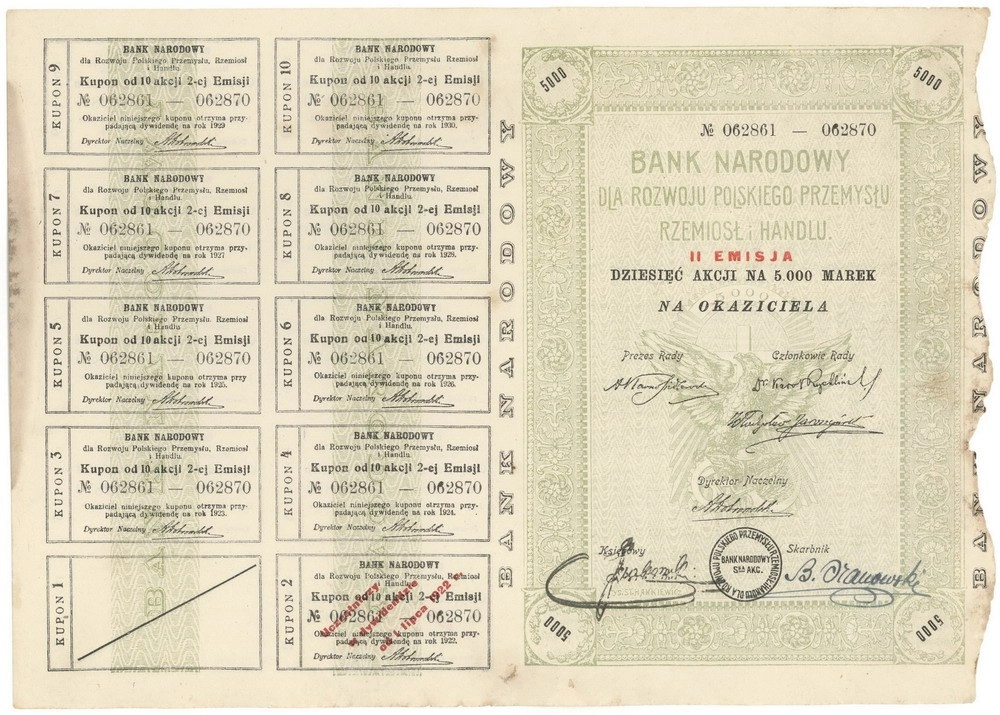 KUPON 9
BANK NARODOWY
dla Rozwoju Polskiego Przemysłu, Rzemiosł
i Handlu.
Kupon od 10 akcji 2-ej Emisji
№ 062861 — 062870
Okaziciel niniejszego kuponu otrzyma przy-
padającą dywidendę na rok 1929
Dyrektor Naczelny
KUPON 10
BANK NARODOWY
dla Rozwoju Polskiego Przemysłu, Rzemiosł
i Handlu.
Kupon od 10 akcji 2-ej Emisji
№ 062861 — 062870
Okaziciel niniejszego kuponu otrzyma przy-
padającą dywidendę na rok 1930.
Dyrektor Naczelny
KUPON 7
BANK NARODOWY
dla Rozwoju Polskiego Przemysłu, Rzemiosł
i Handlu.
Kupon od 10 akcji 2-ej Emisji
№ 062861 — 062870
Okaziciel niniejszego kuponu otrzyma przy-
padającą dywidendę na rok 1927
Dyrektor Naczelny
KUPON 8
BANK NARODOWY
dla Rozwoju Polskiego Przemysłu, Rzemiosł
i Handlu.
Kupon od 10 akcji 2-ej Emisji
№ 062861 — 062870
Okaziciel niniejszego kuponu otrzyma przy-
padającą dywidendę na rok 1928.
Dyrektor Naczelny
KUPON 5
BANK NARODOWY
dla Rozwoju Polskiego Przemysłu, Rzemiosł
i Handlu.
Kupon od 10 akcji 2-ej Emisji
№ 062861 — 062870
Okaziciel niniejszego kuponu otrzyma przy
padającą dywidendę na rok 1925.
Dyrektor Naczelny
KUPON 6
BANK NARODOWY
dla Rozwoju Polskiego Przemysłu, Rzemiosł
i Handlu.
Kupon od 10 akcji 2-ej Emisji
№ 062861 — 062870
Okaziciel niniejszego kuponu otrzyma przy-
padającą dywidendę na rok 1926.
Dyrektor Naczelny
KUPON 3
BANK NARODOWY
dla Rozwoju Polskiego Przemysłu, Rzemiosł
i Handlu.
Kupon od 10 akcji 2-ej Emisji
№ 062861 — 062870
Okaziciel niniejszego kuponu otrzyma przy-
padającą dywidendę na rok 1923.
Dyrektor Naczelny
KUPON 4
BANK NARODOWY
dla Rozwoju Polskiego Przemysłu, Rzemiosł
i Handlu.
Kupon od 10 akcji 2-ej Emisji
№ 062861 — 062870
Okaziciel niniejszego kuponu otrzyma przy-
padającą dywidendę na rok 1924.
Dyrektor Naczelny
KUPON 1
KUPON 2
BANK NARODOWY
dla Rozwoju Polskiego Przemysłu, Rzemiosł
i Handlu.
Kupon od 10 akcji 2-ej Emisji
№ 062861 — 062870
Okaziciel niniejszego kuponu otrzyma przy-
padającą dywidendę na rok 1922.
Dyrektor Naczelny
Uczestniczy
w dywidendzie
od 1 lipca 1922 r.
BANK NARODOWY
5000
5000
№ 062861 — 062870
BANK NARODOWY
DLA ROZWOJU POLSKIEGO PRZEMYSŁU
RZEMIOSŁ i HANDLU.
II EMISJA
DZIESIĘĆ AKCJI NA 5.000 MAREK
NA OKAZICIELA
Prezes Rady
Członkowie Rady
Dyrektor Naczelny
Księgowy
Skarbnik
BANK NARODOWY
Spół. AKC.
DLA ROZWOJU POLSKIEGO PRZEMYSŁU RZEMIOSŁ i HANDLU
5000
5000
BANK NARODOWY